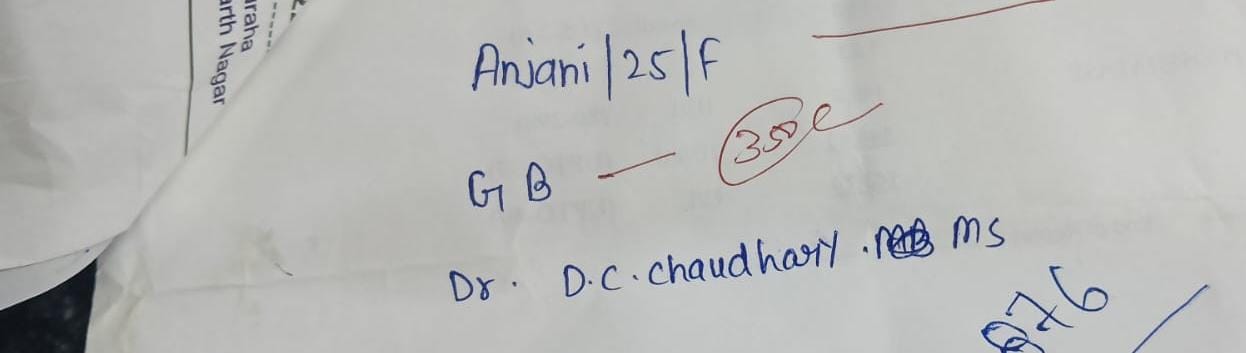 raha
arth Nagar
Anjani/25/F
GB — 350
Dr. D.C. Chaudhary. MS
876